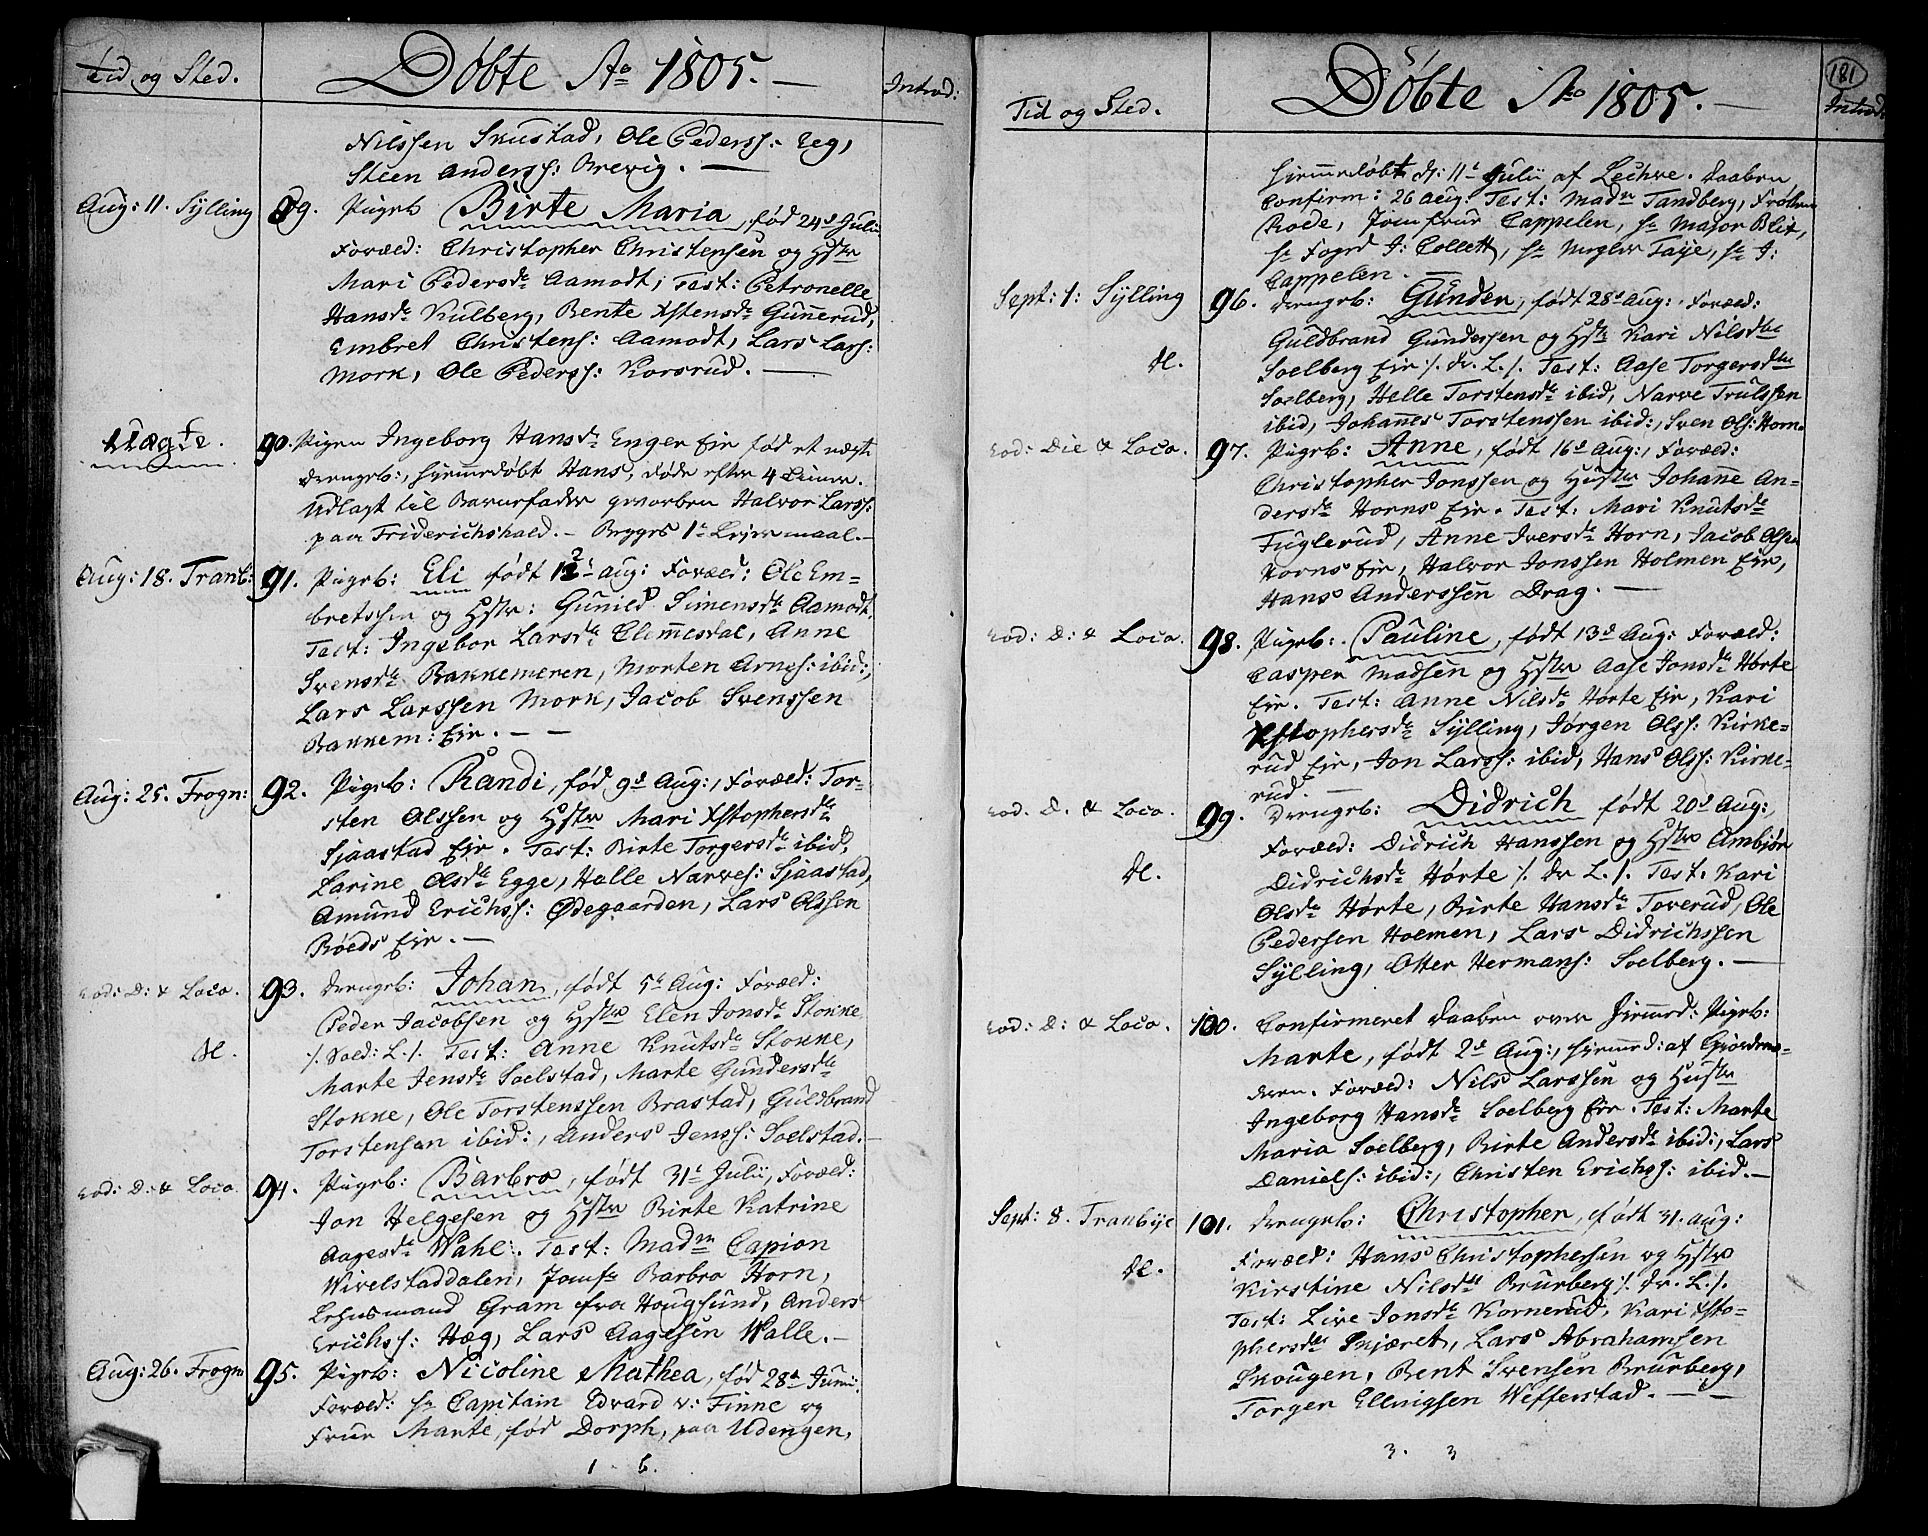 Tid og Sted.
Døbte Ao 1805.
Introd:
Nilssen Skustad, Ole Pederss: Eeg,
Steen Anderss: Brevig.
Aug: 11. Sylling
89. Pigeb Birte Maria, fød 24d Julii
Foræld: Christopher Christensen og Hstr
Mari Pedersdr Aamodt; Test: Petronelle
Hansdr Kulberg, Bente Xstensdr Gunnerud,
Embret Christens: Aamodt, Lars Lars:
Mork, Ole Pederss: Korsrud.
Uægte.
90. Pigen Ingeborg Hansdr Enger Eir fød et uægte
drengeb:, hiemmedøbt Hans, døde efter 4 Timer.
Udlagt til Barnefader gevorben Halvor Larss:
paa Friderichshald. - Begges 1te Leiermaal.-
Aug: 18. Tranb:
91. Pigeb: Eli født 12d Aug: Foræld: Ole Em-
bretssen og Hstr: Gunild Simensdr Aamodt.
Test: Ingebor Larsdr Clemmesdal, Anne
Svensdr Bakkemeren, Morten Arnes: ibid:,
Lars Larssen Mork, Jacob Svenssen
Bakkem: Eir.
Aug: 25. Frogn:
92. Pigeb: Randi, fød 9d Aug:, Foræld: Tor-
sten Olssen og Hstr Mari Xstophersdr
Sjaastad Eir. Test: Birte Torgersdr ibid,
Larine Olsdr Egge, Helle Narves: Sjaastad,
Amund Erichss: Ødegaarden, Lars Olssen
Røeds Eir.
eod: D: & Loco.
93. Drengeb: Johan, født 5t Aug: Foræld:
Peder Jacobsen og Hstr Elen Jonsdr Stokke
dl.
/. Sold: L./. Test: Anne Knutsdr Stokke,
Marte Jensdr Soelstad, Marte Gundersdr
Stokke, Ole Torstenssen Brastad, Guldbrand
Torstensen ibid:, Anders Jenss: Soelstad.
eod: D: & Loco
94. Pigeb: Barbro, født 31t Julii, Foræld:
Jon Helgesen og Hstr Birte Katrine
Aagesdr Wahl. Test: Madm Capion
Wivelstaddalen, Jomfr Barbro Horn,
Lehnsmand Gram fra Hougsund, Anders
Erichss: Hæg, Lars Aagesen Walle.
Aug: 26. Frogn
95. Pigeb: Nicoline Mathea, fød 28d Junii.
Foræld: Hr Capitain Edvard v: Finne og
Frue Marte, fød Dorph, paa Udengen,
1 6.
181
Tid og Sted.
Døbte Ao 1805.
Introd
hiemmedøbt d: 11t Julii af Lechve. Daaben
Confirm: 26 Aug: Test: Madm Tandberg, Frøken
Rode, Jomfrue Cappelen, Hr Major Blix,
Hr Fogd J: Collett, Hr Mægler Taye, Hr J:
Cappelen.
Sept: 1: Sylling
96. Drengeb: Gunder, født 28d Aug: Foræld:
Guldbrand Gunderssen og Hstr Kari Nilsdtr
dl.
Soelberg Eir /. dr. L./. Test: Aase Torgersdtr
Soelberg, Helle Torstensdr ibid, Narve Trulssen
ibid, Johannes Torstenssen ibid:, Sven Ols: Horn.
eod: Die & Loco.
97. Pigeb: Anne, født 16d Aug:, Foræld:
Christopher Jonssen og Hustr Johanne An-
dersdr Horns Eir. Test: Mari Knutsdr
Fuglerud, Anne Iversdr Horn, Jacob Olsen
Horns Eir, Halvor Jonssen Holmen Eir,
Hans Anderssen Drag.
eod: D: & Loco.
98. Pigeb: Pauline, født 13d Aug: Foræld:
Casper Madsen og Hstr Aase Jonsdr Hørte
Eir. Test: Anne Nilsdr Hørte Eir, Kari
Xstophersdr Sylling, Jørgen Olss: Kirke-
rud Eir, Jon Larss: ibid, Hans Olss: Kirke-
rud.
eod. D. & Loco.
99. Drengeb: Didrich født 20d Aug:,
Foræld: Didrich Hanssen og Hstr Ambjør
dl.
Didrichsdr Hørte /. dr L./. Test: Kari
Olsdr Hørte, Birte Hansdr Toverud, Ole
Pedersen Holmen, Lars Didrichssen
Sylling, Otter Hermans: Soelberg.
eod: D: & Loco.
100. Confirmeret Daaben over hiemmed: Pigeb:
Marte, født 2d Aug:, hiemmed: af Giordmo-
deren. Foræld: Nils Larssen og Hustr
Ingeborg Hansdr Soelberg Eir. Test: Marte
Maria Soelberg, Birte Andersdr ibid:, Lars
Daniels: ibid:, Christen Erichss: ibid.
Sept: 8. Tranbye
101. Drengeb: Christopher, født 31. Aug:
dl.
Foræld: Hans Christophersen og Hstr
Kirstine Nilsdr Brurberg /. dr. L./.
Test: Live Jonsdr Kornerud, Kari Xsto-
phersdr Skjæret, Lars Abrahamsen
Skougen, Bent Svensen Brurberg,
Torger Ellingsen Wefferstad.
3. 3